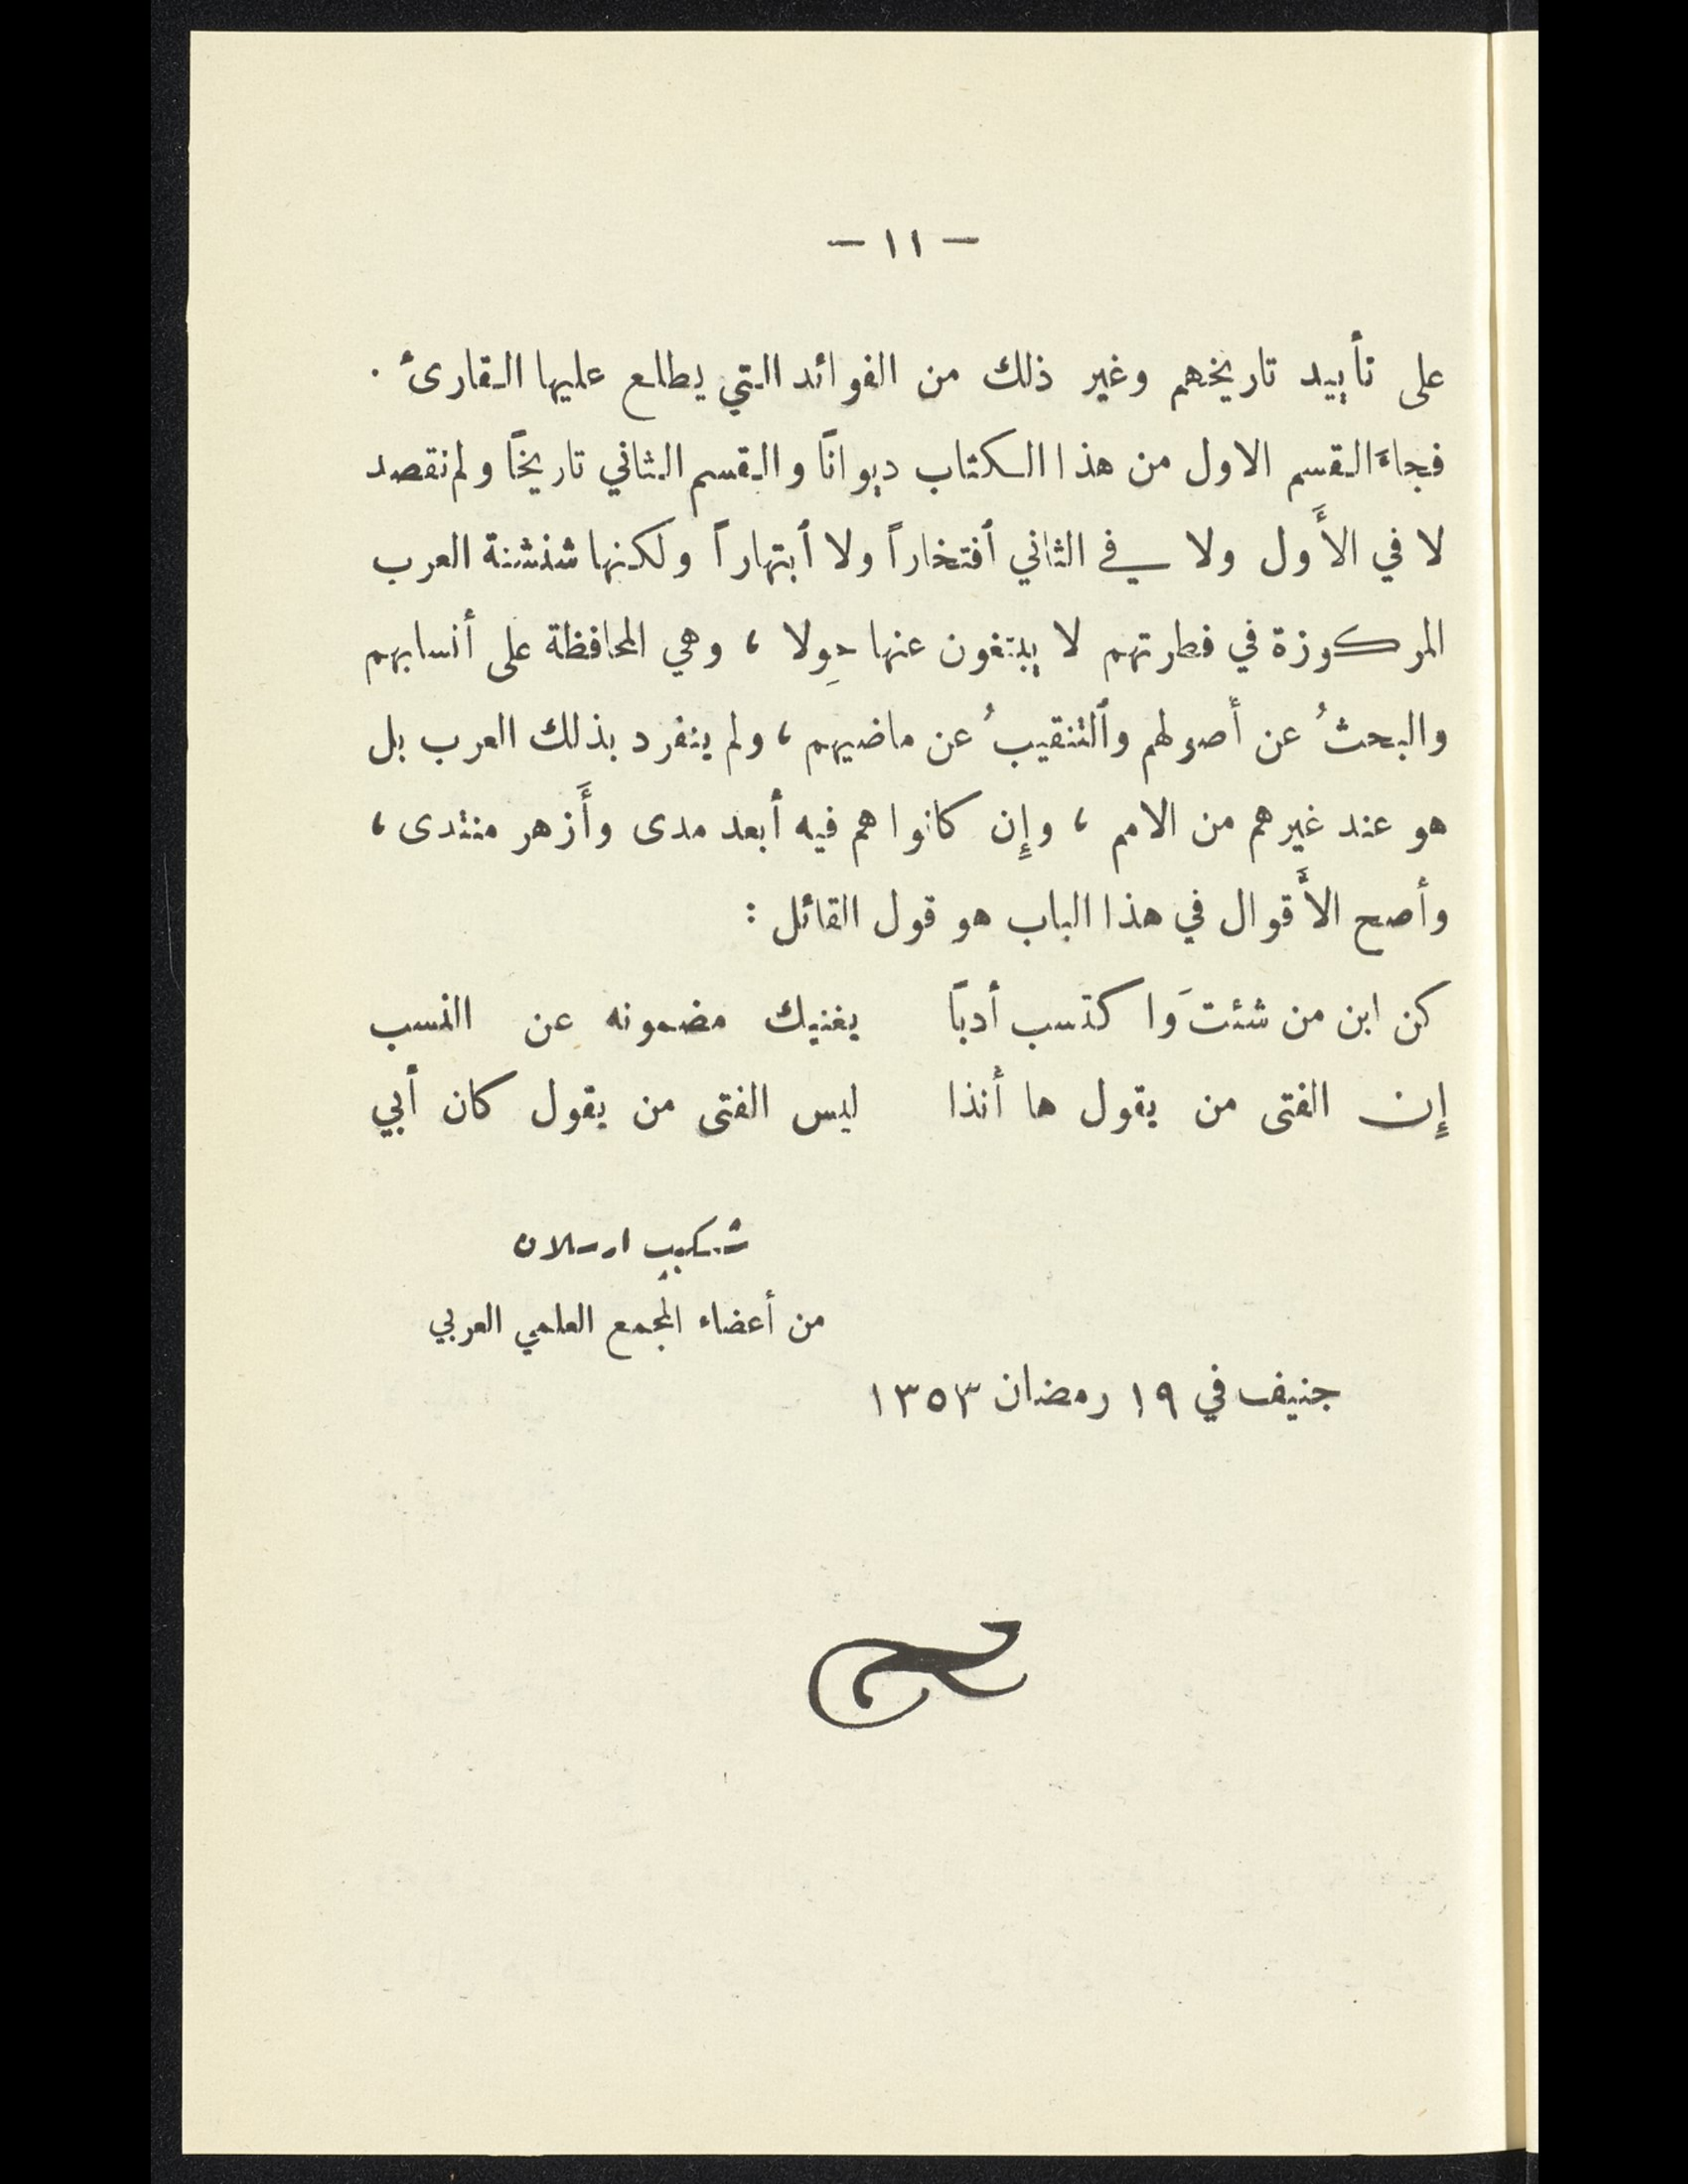 — ١١ —
على تأييد تاريخهم وغير ذلك من الفوائد التي يطلع عليها القارئ .
فجاءَ القسم الاول من هذا الكتاب ديوانًا والقسم الثاني تاريخًا ولم نقصد
لا في الأَول ولا في الثاني أفتخاراً ولا أبتهاراً ولكنها شنشنة العرب
المركوزة في فطرتهم لا يبتغون عنها حِولا ، وهي المحافظة على أنسابهم
والبحثُ عن أصولهم وألتنقيبُ عن ماضيهم ، ولم ينفرد بذلك العرب بل
هو عند غيرهم من الامم ، وإِن كانوا هم فيه أبعد مدى وأَزهر منتدى ،
وأصح الأَقوال في هذا الباب هو قول القائل :
كن ابن من شئتَ واكتسب أدبًا يغنيك مضمونه عن النسب
إِن الفتى من يقول ها أنذا ليس الفتى من يقول كان أبي
شكيب ارسلان
من أعضاء المجمع العلمي العربي
جنيف في ١٩ رمضان ١٣٥٣